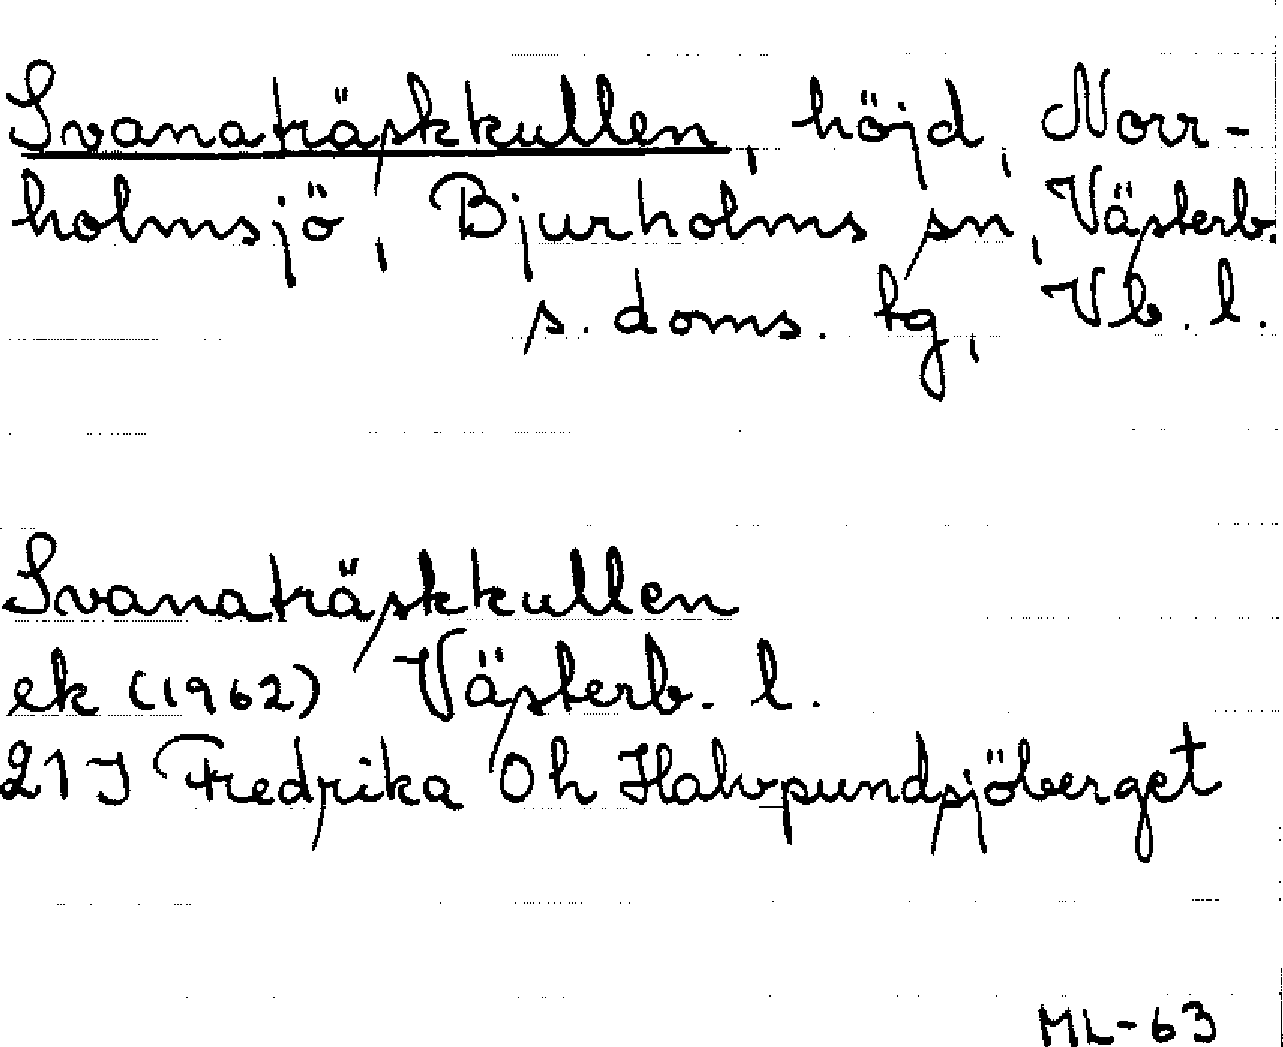 Svanaträskkullen, höjd, Norr-
holmsjö, Bjurholms sn, Västerb.
s. doms. tg, Vb. l.
Svanaträskkullen
ek (1962) Västerb. l.
21 J Fredrika 0h Halvpundsjöberget
ML-63